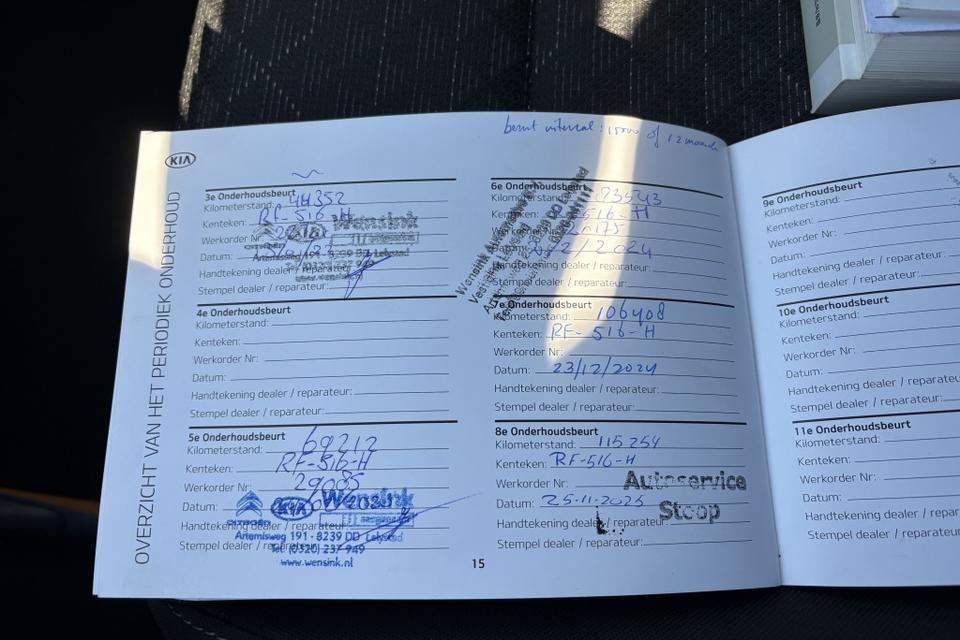 beurt interval: 15000 of 12 maanden
KIA
OVERZICHT VAN HET PERIODIEK ONDERHOUD
3e Onderhoudsbeurt
Kilometerstand: 44352
Kenteken: RF-516-H
Werkorder Nr:
Datum:
Handtekening dealer / reparateur:
Stempel dealer / reparateur:
KIA Wensink
CITROËN
Artemisweg 191 - 8239 DD Lelystad
Tel (0320) 237 949
www.wensink.nl
4e Onderhoudsbeurt
Kilometerstand:
Kenteken:
Werkorder Nr:
Datum:
Handtekening dealer / reparateur:
Stempel dealer / reparateur:
5e Onderhoudsbeurt
Kilometerstand: 69212
Kenteken: RF-516-H
Werkorder Nr: 29085
Datum:
Handtekening dealer / reparateur:
Stempel dealer / reparateur:
KIA Wensink
CITROËN
Artemisweg 191 - 8239 DD Lelystad
Tel (0320) 237 949
www.wensink.nl
6e Onderhoudsbeurt
Kilometerstand:
Kenteken: 516-H
Werkorder Nr:
Datum: /2/2024
Handtekening dealer / reparateur:
Stempel dealer / reparateur:
Wensink
Vestiging Lelystad
7e Onderhoudsbeurt
Kilometerstand: 106408
Kenteken: RF-516-H
Werkorder Nr:
Datum: 23/12/2024
Handtekening dealer / reparateur:
Stempel dealer / reparateur:
8e Onderhoudsbeurt
Kilometerstand: 115254
Kenteken: RF-516-H
Werkorder Nr:
Datum: 25-11-2025
Handtekening dealer / reparateur:
Stempel dealer / reparateur:
Autoservice
Stoop
15
9e Onderhoudsbeurt
Kilometerstand:
Kenteken:
Werkorder Nr:
Datum:
Handtekening dealer / reparateur:
Stempel dealer / reparateur:
10e Onderhoudsbeurt
Kilometerstand:
Kenteken:
Werkorder Nr:
Datum:
Handtekening dealer / reparateur:
Stempel dealer / reparateur:
11e Onderhoudsbeurt
Kilometerstand:
Kenteken:
Werkorder Nr:
Datum:
Handtekening dealer / reparateur:
Stempel dealer / reparateur: